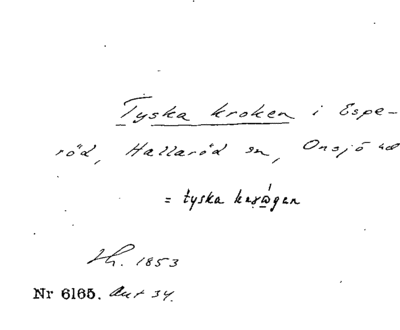 Tyska kroken i Espe-
röd, Hallaröd sn, Onsjö hd
= tyska
1853
Nr 6165. Aut 34.